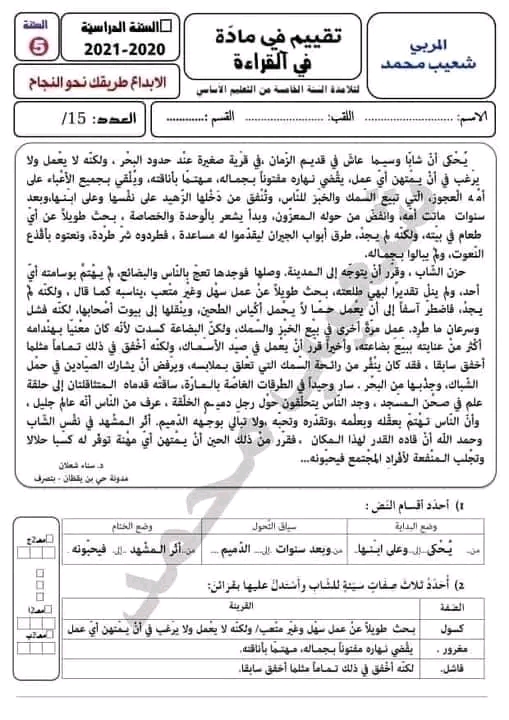 المربي
شعيب محمد
تقييم في مادّة
في القراءة
لتلامذة السنة الخامسة من التعليم الأساسي
السنة الدراسية
2021-2020
الابداع طريقك نحو النجاح
السنة
5
الاسم: ........................ اللقب: ..................... القسم :............
العدد: 15/
يُحْكى أنّ شابّا وسيما عاش في قديم الزّمان ،في قرية صغيرة عند حدود البحر ، ولكنّه لا يعمل ولا
يرغب في أنْ يمتهن أيّ عمل، يقضي نهاره مفتوناً بجماله، مهتمّا بأناقته، ويُلْقي بجميع الأعباء على
أمّه العجوز، الّتي تبيع السّمك والخبز للنّاس، وتُنْفق من دخْلها الزّهيد على نفْسها وعلى ابنها،وبعد
سنوات ماتت أمّه، وانفضّ من حوله المعزّون، وبدأ يشعر بالوحدة والخصاصة ، بحث طويلاً عن أيّ
طعام في بيْته، ولكنّه لمْ يجدْ، طرق أبواب الجيران ليقدّموا له مساعدة ، فطردوه شرّ طردة، ونعتوه بأقْذع
النّعوت، ولمْ يبالوا بجماله.
حزن الشّاب ، وقرّر أنْ يتوجّه إلى المدينة. وصلها فوجدها تعجّ بالنّاس والبضائع، لمْ يهْتمّ بوسامته أيّ
أحد، ولمْ ينلْ تقديرًا لبهيّ طلعته، بحث طويلاً عنْ عمل سهْل وغير متْعب ،يناسبه كما قال ، ولكنّه لمْ
يجدْ، فاضْطرّ آسفاً إلى أن يعمل حمّالا يحمل أكْياس الطّحين، وينْقلها إلى بيوت أصْحابها، لكنّه فشل
وسرعان ما طُرد. عمل مرّة أخرى في بيْع الخبْز والسّمك، ولكنّ البضاعة كسدت لأنّه كان معْنيّا بهنْدامه
أكْثر منْ عنايته ببيْع بضاعته، وأخيرا قرّر أنْ يعمل في صيْد الأسْماك، ولكنّه أخْفق في ذلك تماما مثلما
أخفق سابقا ، فقد كان ينْفر من رائحة السّمك التي تعلق بملابسه، ويرفض أنْ يشارك الصيّادين في حمْل
الشّباك، وجذْبها من البحْر . سار وحيداً في الطّرقات الغاصّة بالمارّة، ساقته قدماه المتثاقلتان إلى حلقة
علم في صحْن المسجد ، وجد النّاس يتحلّقون حوْل رجل دميم الخلْقة ، عرف من النّاس أنّه عالم جليل ،
وأنّ النّاس تهْتمّ بعقْله وبعلْمه ،وتقدّره وتحبّه ،ولا تبالي بوجهه الدّميم. أثّر المشْهد في نفْس الشّاب
وحمد اللّه أنْ قاده القدر لهذا المكان ، فقرّر منْ ذلك الحين أنْ يمتهن أيّ مهنة توفّر له كسبا حلالا
وتجلب المنْفعة لأفراد المجتمع فيحبّونه...
د. سناء شعلان
مدونة حي بن يقظان - بتصرف
1) أحدّد أقسام النّصّ :
وضع البداية
سياق التّحول
وضع الختام
من.. يُحْكى ..إلى.. وعلى ابنها..
من وبعد سنوات ..إلى.... الدّميم ...
من.. أثّر المشْهد ..إلى.. فيحبّونه ...
معـ2ج
2) أُحَدّدُ ثلاث صفات سيّئة للشّاب وأسْتدلّ عليها بقرائن:
الصّفة
القرينة
كسول
بحث طويلاً عنْ عمل سهْل وغير متْعب/ ولكنّه لا يعمل ولا يرغب في أنْ يمتهن أيّ عمل
مغرور .
يقضي نهاره مفتوناً بجماله، مهتمّا بأناقته.
فاشل.
لكنّه أخْفق في ذلك تماما مثلما أخفق سابقا.
شعيب محمد